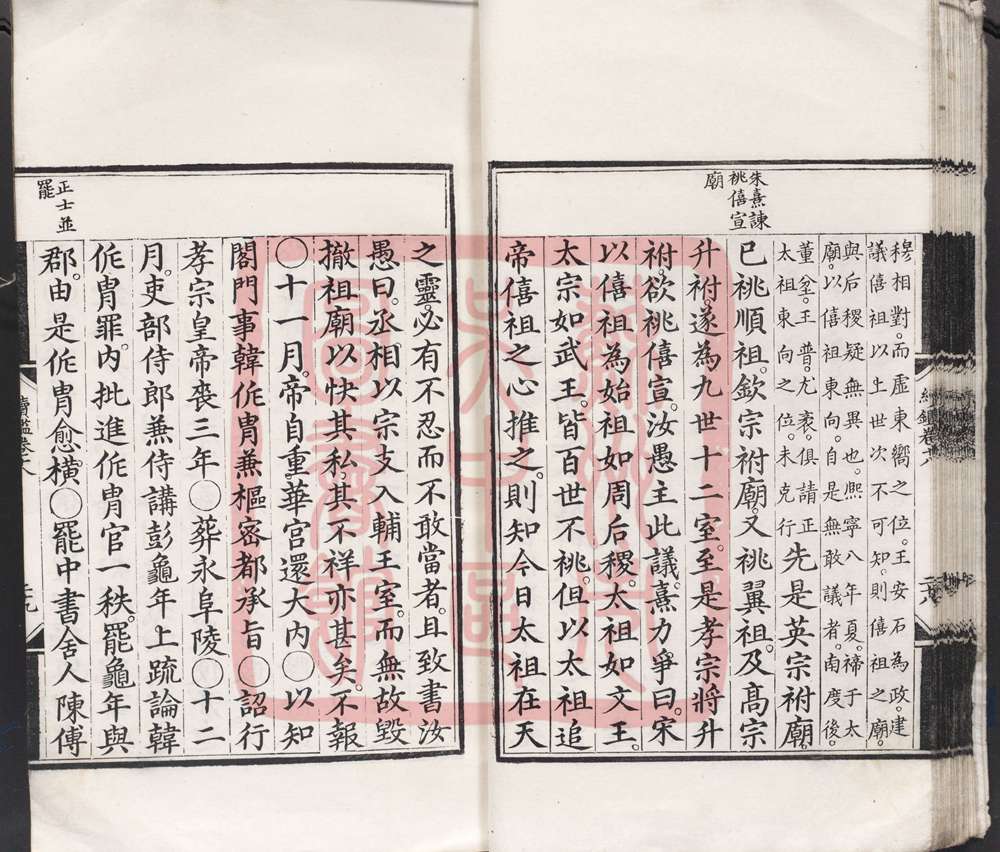 朱熹諫
祧僖宣
廟
穆相對。而虛東嚮之位。王安石為政。建
議僖祖以上世次不可知。則僖祖之廟。
與后稷疑無異也。熈寧八年夏。禘于太
廟。以僖祖東向。自是無敢議者。南度後。
董弅。王普。尤袤。俱請正
太祖東向之位。未克行
先是英宗祔廟。
已祧順祖。欽宗祔廟。又祧翼祖。及高宗
升祔。遂為九世十二室。至是孝宗將升
祔。欲祧僖宣。汝愚主此議。熹力爭曰。宋
以僖祖為始祖如周后稷。太祖如文王。
太宗如武王。皆百世不祧。但以太祖追
帝僖祖之心推之。則知今日太祖在天
正士並
罷
之靈。必有不忍而不敢當者。且致書汝
愚曰。丞相以宗支入輔王室。而無故毀
撤祖廟以快其私。其不祥亦甚矣。不報
○十一月。帝自重華宮還大內○以知
閤門事韓侂胄兼樞密都承旨○詔行
孝宗皇帝喪三年○葬永阜陵○十二
月。吏部侍郎兼侍講彭龜年上疏論韓
侂胄罪。內批進侂胄官一秩。罷龜年與
郡。由是侂胄愈橫○罷中書舍人陳傅
蘇州市
吳中區
圖書館